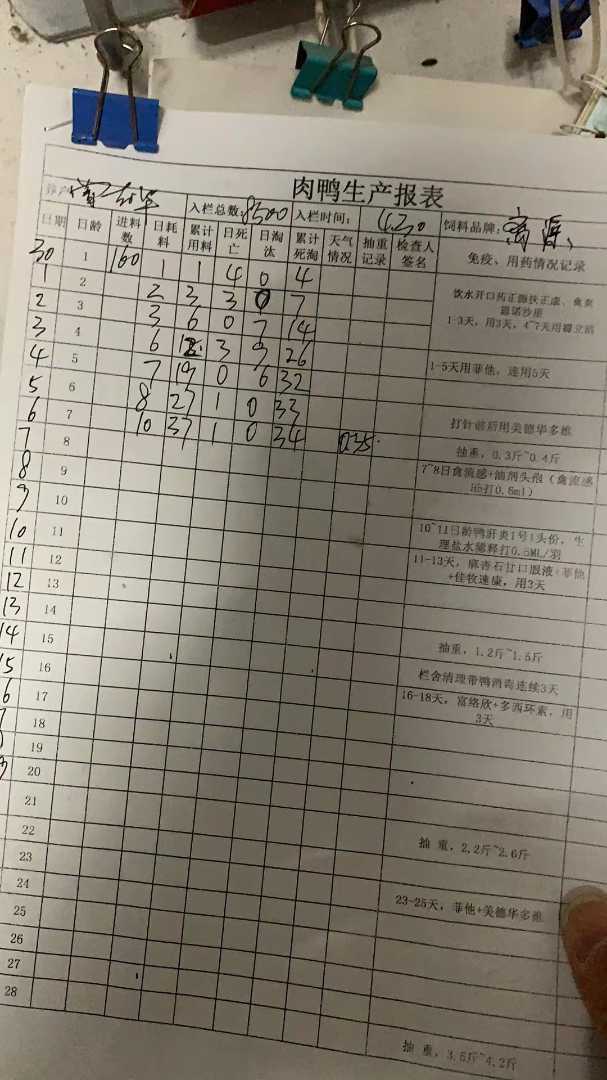 肉鸭生产报表
养户 入栏总数: 8500 入栏时间: 4.30 饲料品牌:
日期 日龄 进料数 日耗料 累计用料 日死亡 日淘汰 累计死淘 天气情况 抽重记录 检查人签名 免疫、用药情况记录
30 1 160 1 1 4 0 4
1 2 2 3 3 0 7 饮水开口药正源扶正康、禽炎
2 3 3 6 0 7 14 1-3天，用3天，4~7天用
3 4 6 12 3 9 26
4 5 7 19 0 6 32 1-5天用菲他，连用5天
5 6 8 27 1 0 33
6 7 10 37 1 0 34 0.35 打针前后用美德华多维
7 8 抽重，0.3斤~0.4斤
8 9 7~8日禽流感+油剂头孢（禽流感
油打0.6ml）
9 10
10 11 10~11日龄鸭肝炎1号1头份，生
理盐水稀释打0.5ML/羽
11 12 11-13天，麻杏石甘口服液+菲他
12 13 +佳牧速康，用3天
13 14
14 15 抽重，1.2斤~1.5斤
15 16 栏舍清理带鸭消毒连续3天
6 17 16-18天，富络欣+多西环素，用
3天
18
19
20
21
22 抽 重，2.2斤~2.6斤
23
24 23-25天，菲他+美德华多维
25
26
27
28 抽 重，3.6斤~4.2斤